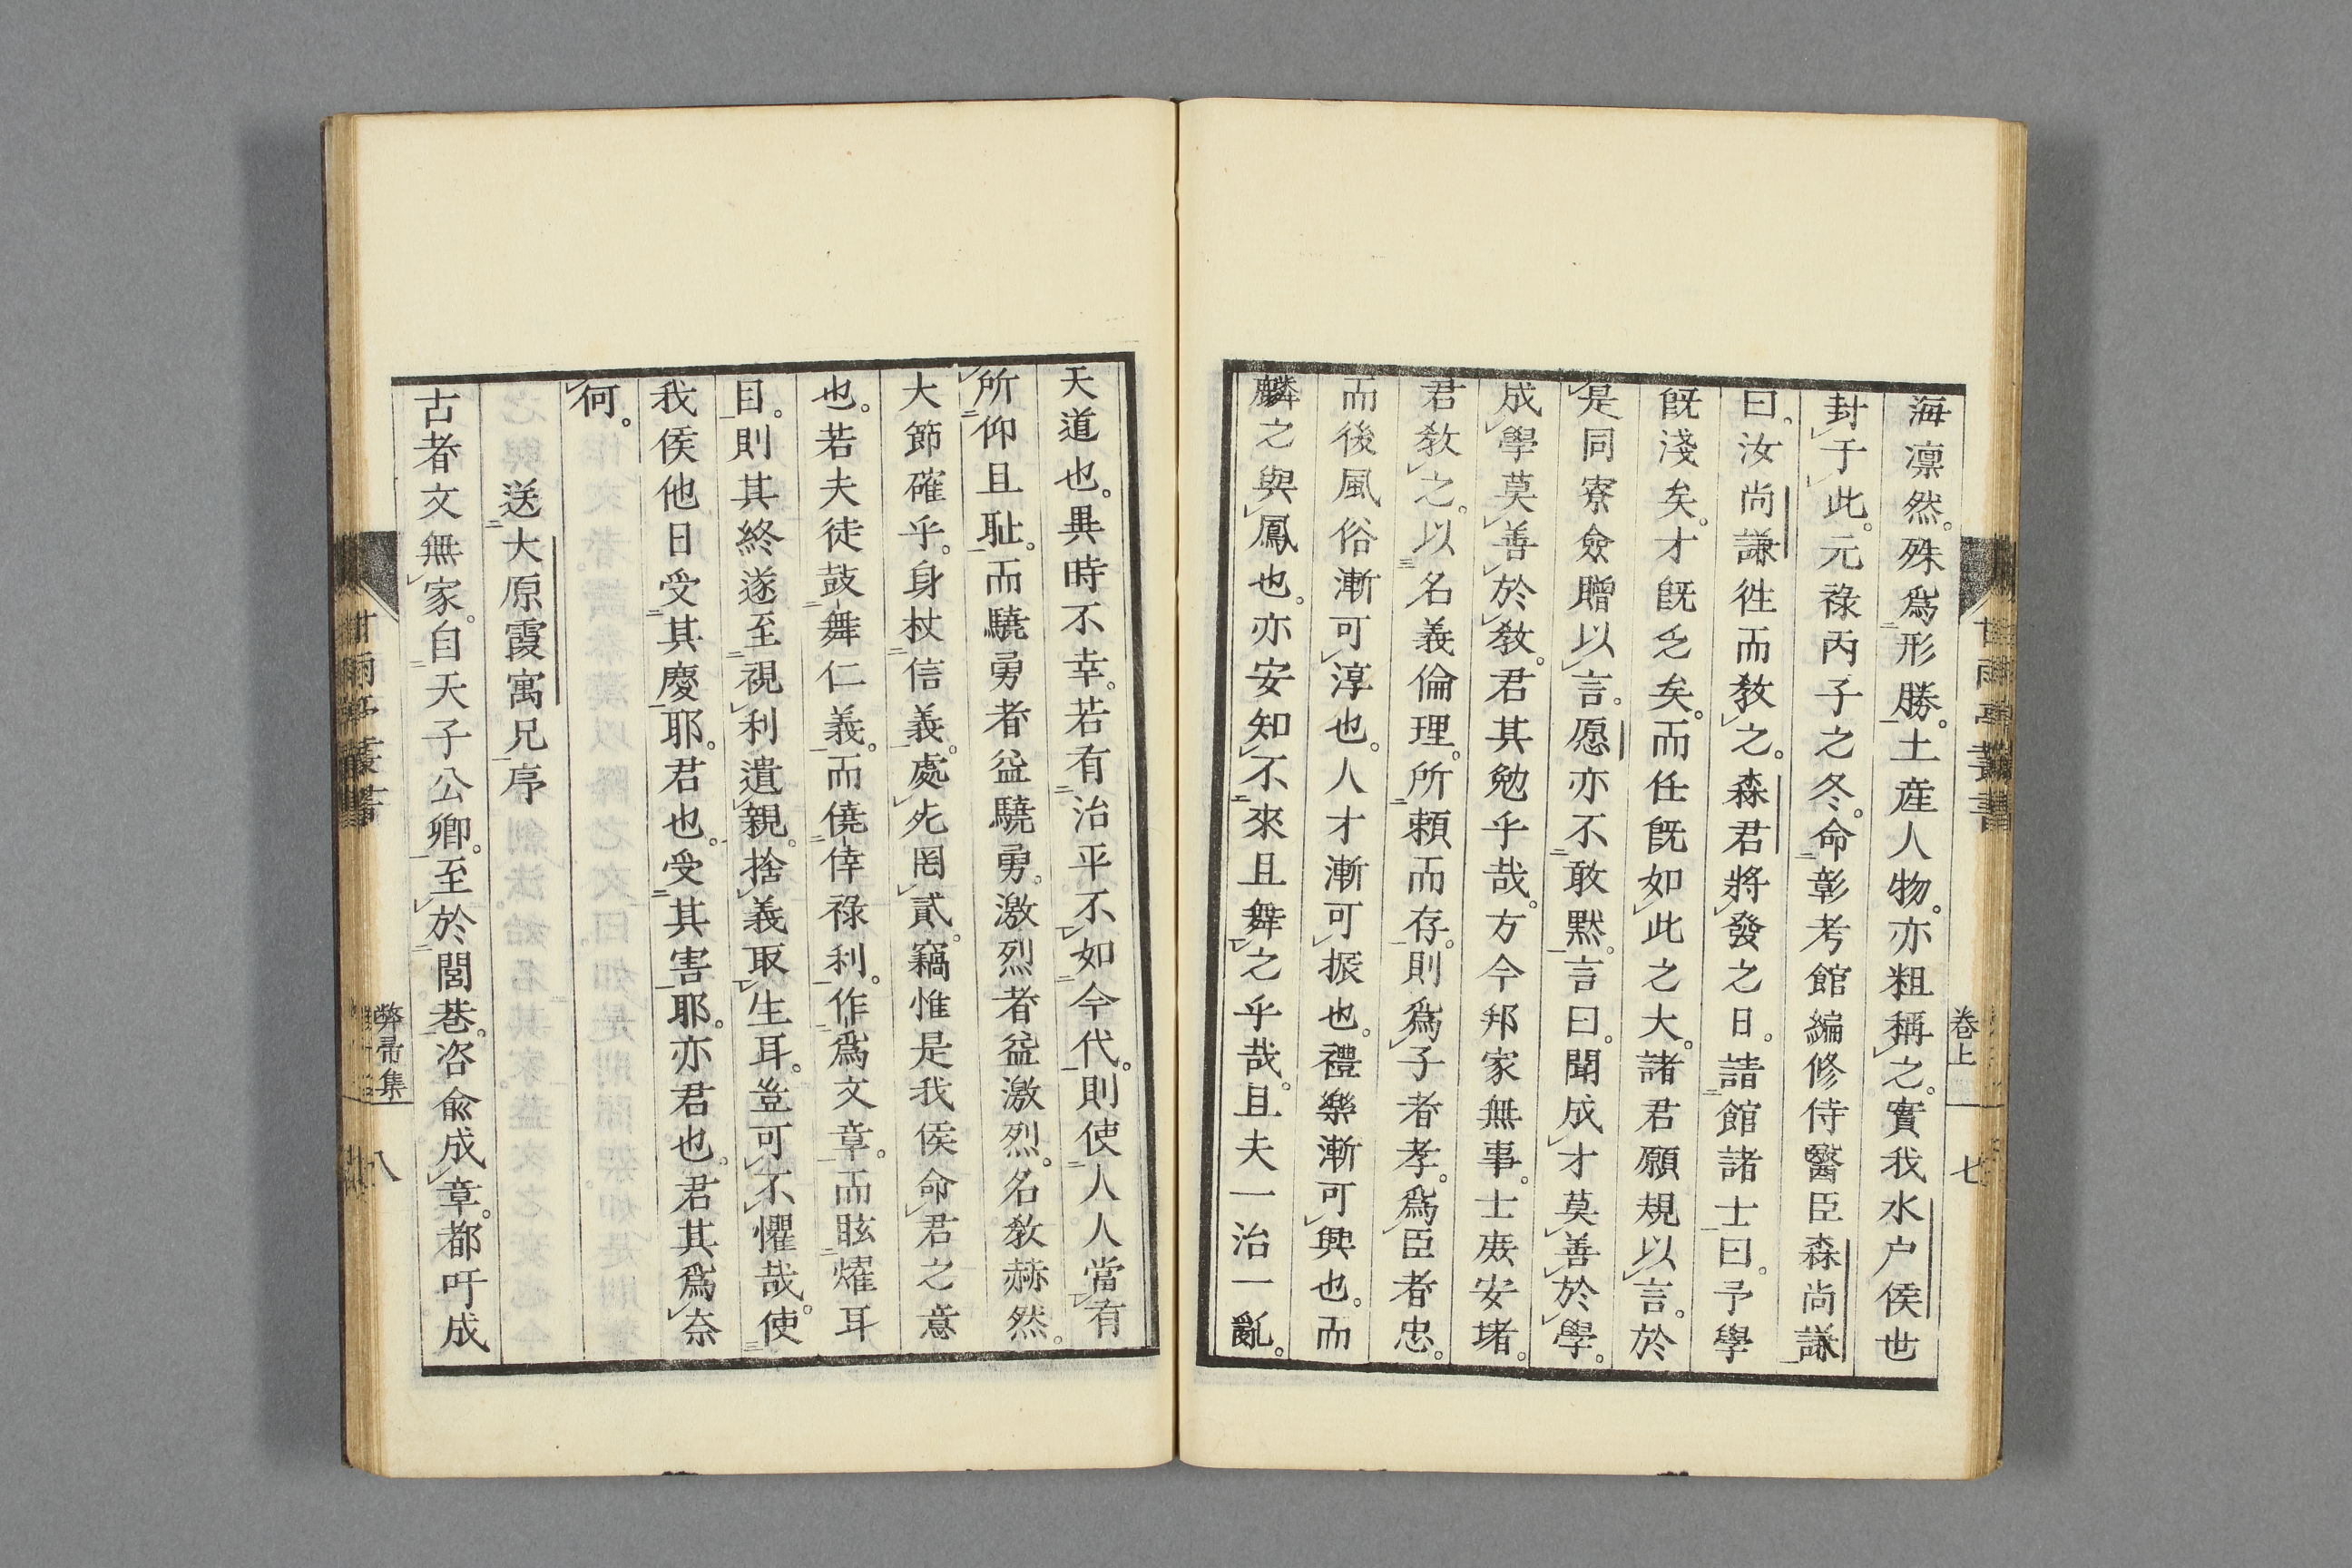 海凛然。殊爲形勝。土産人物。亦粗稱之。實我水户侯世
封于此。元祿丙子之冬。命彰考館編修侍醫臣森尚謙
曰。汝尚謙徃而敎之。森君將發之日。請館諸士曰。予學
旣淺矣。才旣乏矣。而任旣如此之大。諸君願規以言。於
是同寮僉贈以言。愿亦不敢默。言曰。聞成才莫善於學。
成學莫善於敎。君其勉乎哉。方今邦家無事。士庻安堵。
君敎之。以名義倫理。所頼而存。則爲子者孝。爲臣者忠。
而後風俗漸可淳也。人才漸可振也。禮樂漸可興也。而
麟之與鳳也。亦安知不來且舞之乎哉。且夫一治一亂。
甘雨亭叢書
卷上
七
天道也。異時不幸。若有治平不如今代。則使人人當有
所仰且耻。而驍勇者益驍勇。激烈者益激烈。名敎赫然。
大節確乎。身杖信義。處死罔貳。竊惟是我侯命君之意
也。若夫徒鼓舞仁義。而僥倖祿利。作爲文章。而眩燿耳
目。則其終遂至視利遺親。捨義取生耳。豈可不懼哉。使
我侯他日受其慶耶。君也。受其害耶。亦君也。君其爲奈
何。
送大原霞寓兄序
古者文無家。自天子公卿。至於閭巷。咨兪成章。都吁成
甘雨亭叢書
弊帚集
八